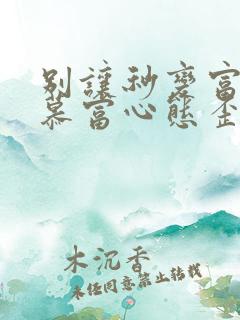 别让秒变富
慕富心态歪
木沉香
未经同意禁止转载